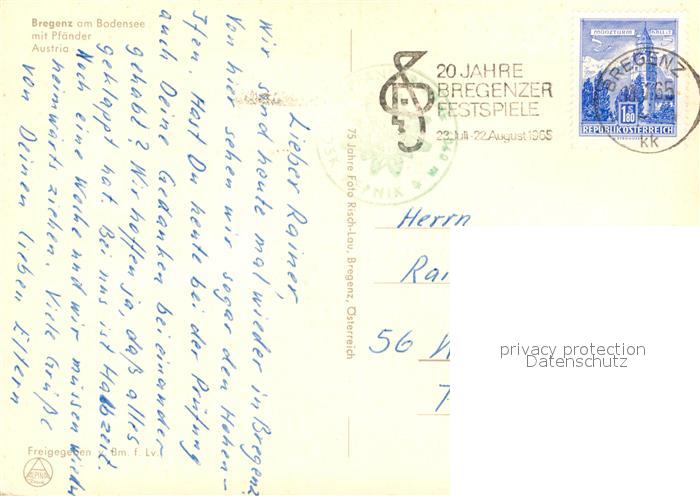 Bregenz am Bodensee
mit Pfänder
Austria
Lieber Rainer,
wir sind heute mal wieder in Bregenz
Von hier sehen wir sogar den Hohen-
Ifen. Hast Du heute bei der Prüfung
auch Deine Gedanken beieinander
gehabt? Wir hoffen ja, daß alles
geklappt hat. Bei uns ist Halbzeit.
Noch eine Woche und wir müssen wieder
heimwärts ziehen. Viele Grüße
von Deinen lieben Eltern
Freigegeben v. Bm. f. Lv.
ALPINA
75 Jahre Foto Risch-Lau, Bregenz, Österreich
20 JAHRE
BREGENZER
FESTSPIELE
23. Juli - 22. August 1965
MÜNZTURM HALL i. T.
S 1.80
REPUBLIK ÖSTERREICH
BREGENZ
65
kk
Herrn
Rai
56 W
privacy protection
Datenschutz